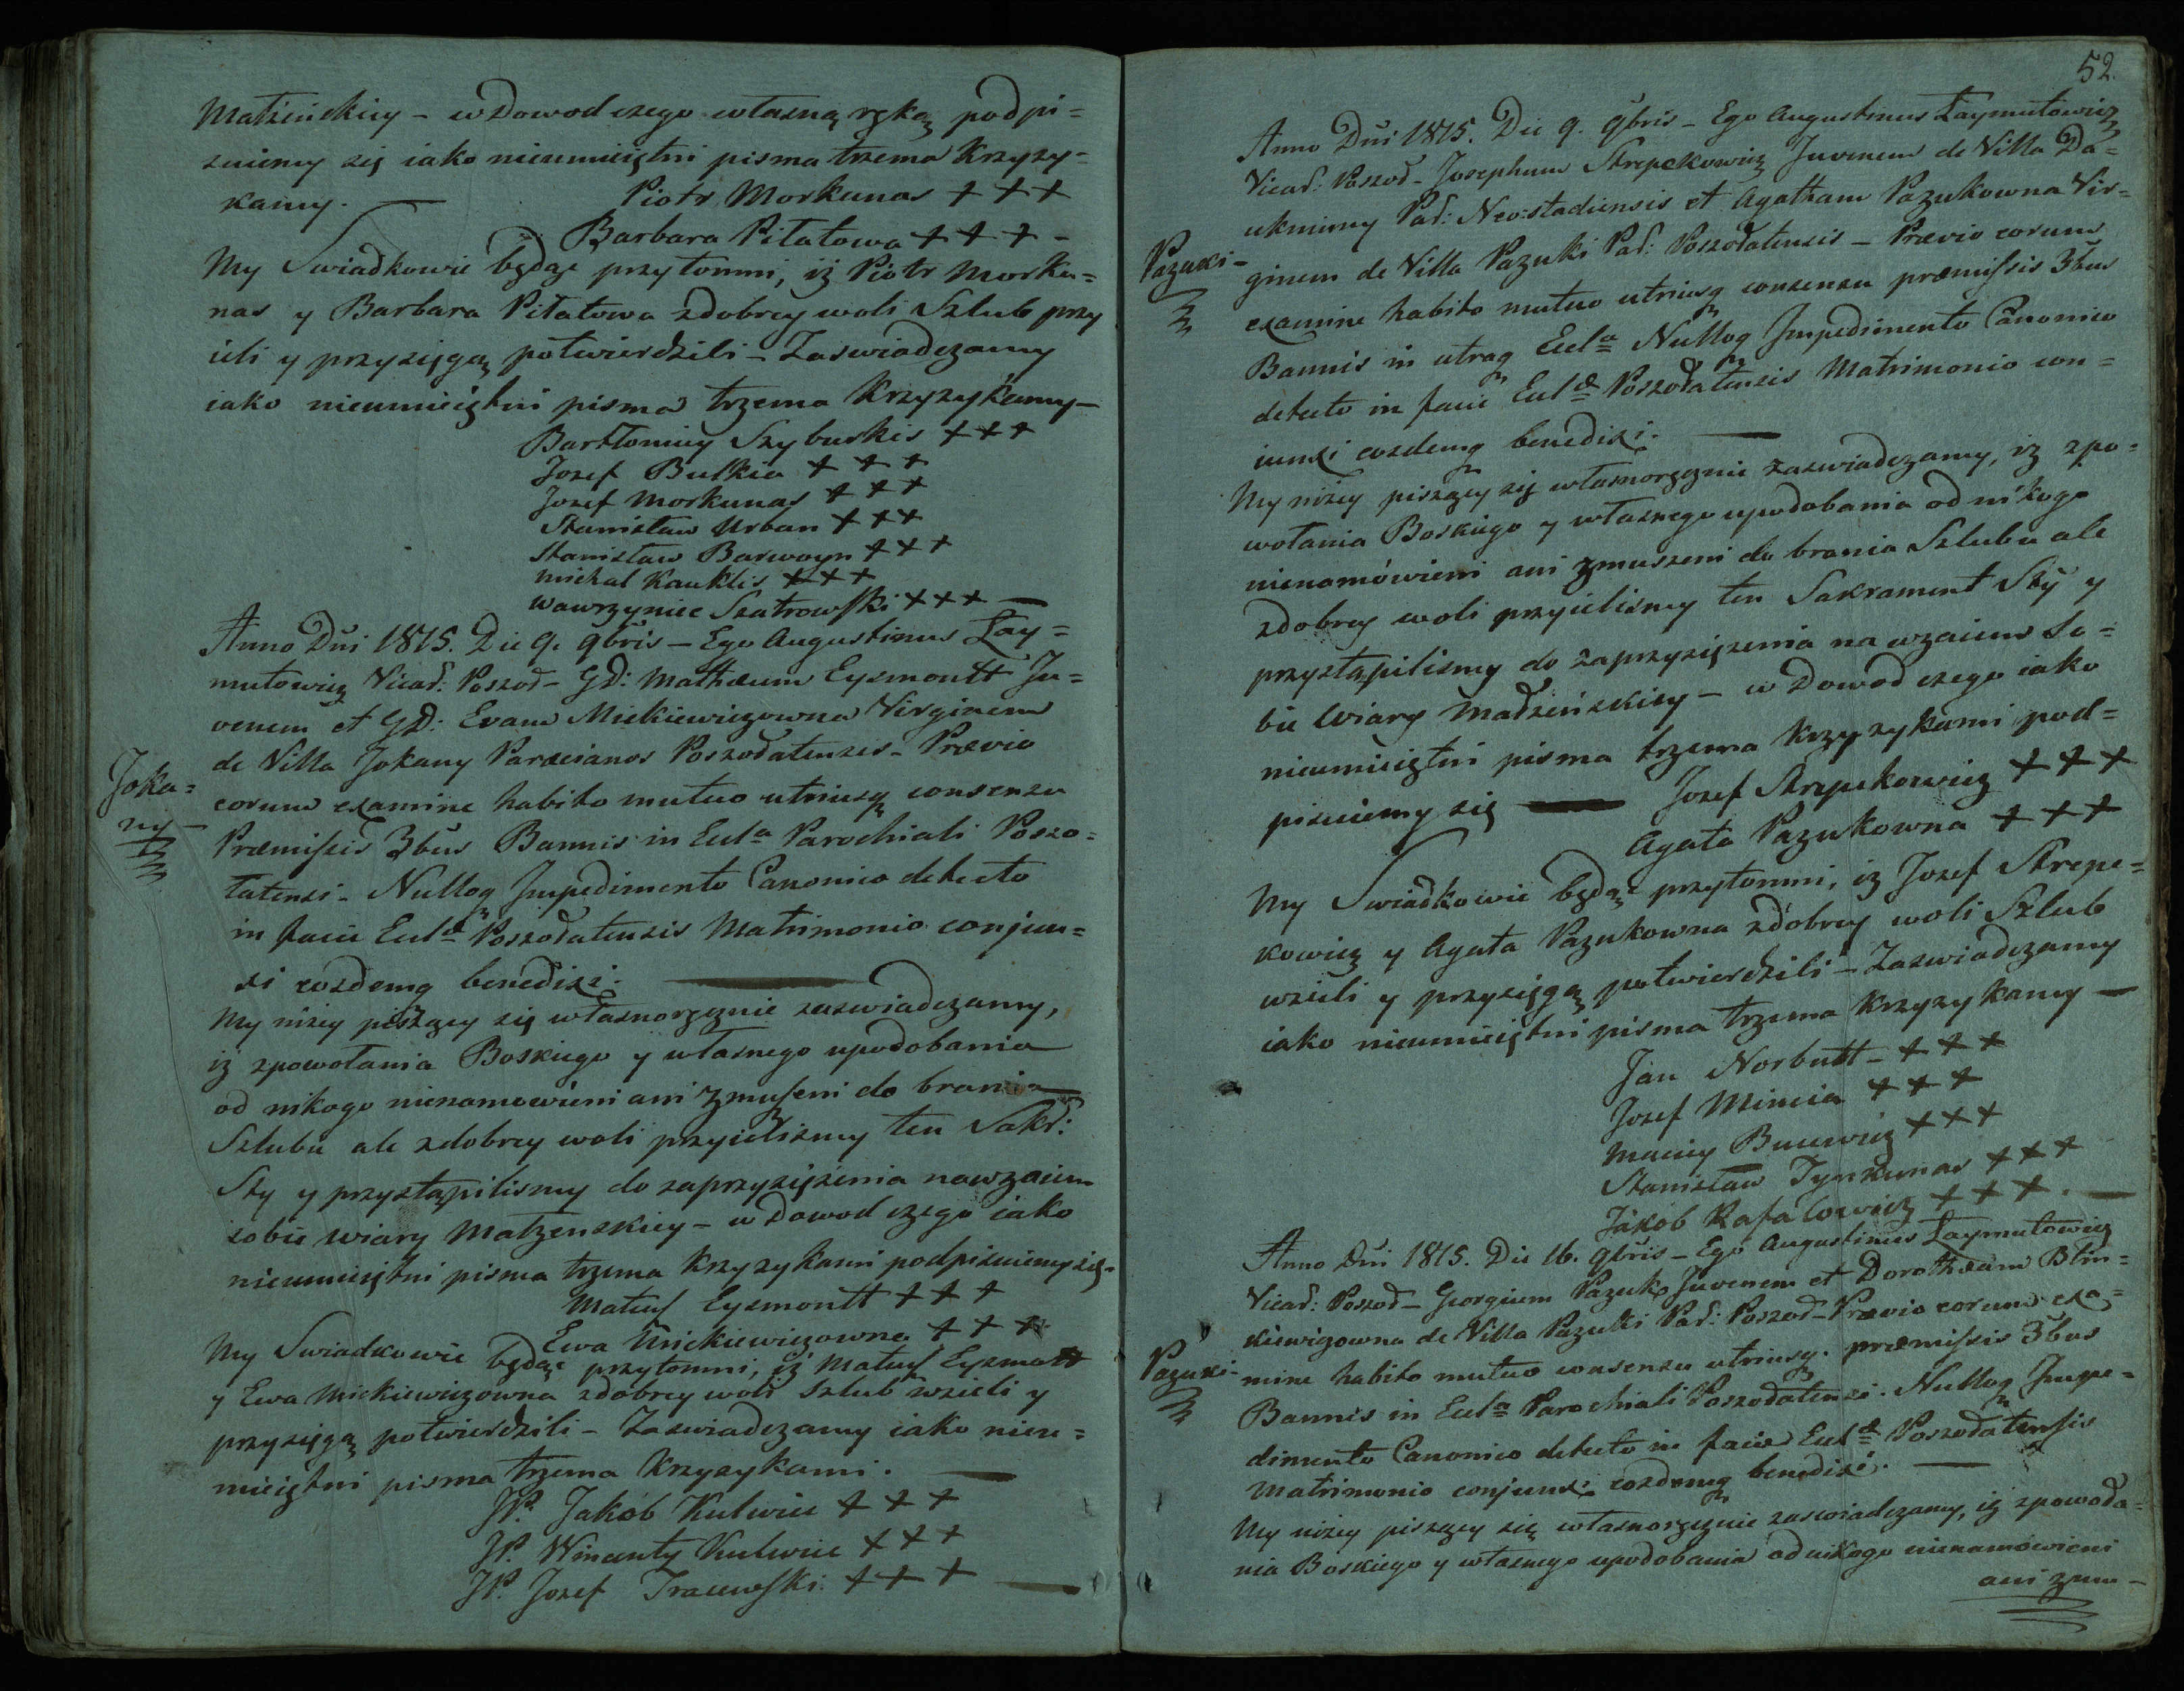 Małzenskiey - w Dowod czego własną ręką podpi=
suiemy się iako nieumieiętni pisma trzema Krzyzy=
kamy. — Piotr Morkunas +++
Barbara Piłatowa +++ -
My Swiadkowie będąc przytomni, iż Piotr Morku=
nas y Barbara Piłatowa zdobrey woli Szlub przy
ieli y przysięgą potwierdzili - Zaswiadczamy
iako nieumieiętni pisma trzema Krzyzykamy -
Bartłomiey Szyburskis +++
Jozef Butkia +++
Jozef Morkunas +++
Stanisław Urban +++
Stanisław Barwoyn +++
Michał Kauklis +++
Wawrzyniec Szatrowski +++ —
Anno Dni 1815. Die 9. 9bris - Ego Augustinus Łay=
mutowicz Vicar: Poszoł- GD: Mathæum Eysmontt Ju=
venem et GD: Evam Mickiewiczowna Virginem
de Villa Jokany Paræcianos Poszołatenses - Prævio
Joka=
ny -
eorum examine habito mutuo utriusq consensu
Præmissis 3bus Bannis in Eccla Parochiali Poszo=
łatensi - Nulloq Impedimento Canonico detecto
in facie Ecclæ Poszołatensis Matrimonio conjun=
xi eosdemq benedixi. —
My niżey piszący się własnoręcznie zaswiadczamy,
iż zpowołania Boskiego y własnego upodobania
od nikogo nienamowieni ani zmuszeni do brania
Szlubu ale zdobrey woli przyieliszmy ten Sakr:
Sty y przystąpiliszmy do zaprzysiężenia nawzaiem
sobie wiary Małzenskiey - w Dowod czego iako
nieumieiętni pisma trzema Krzyzykami podpisuiemy się.
Mateusz Eysmontt +++
Ewa Mickiewiczowna +++
My Swiadkowie będąc przytomni, iż Mateusz Eysmontt
y Ewa Mickiewiczowna zdobrey woli Szlub wzieli y
przysięgą potwierdzili - Zaswiadczamy iako nieu=
mieiętni pisma trzema Krzyzykami. —
JP. Jakob Kulwiec +++
JP. Wincenty Kulwiec +++
JP. Jozef Tracewski +++ —
52.
Anno Dni 1815. Die 9. 9bris - Ego Augustinus Łaymutowicz
Vicar: Poszoł- Josephum Strepekowicz Juvenem de Villa Da=
ukniuny Par: Neo:stadiensis et Agatham Pazukowna Vir=
Pazuki-
ginem de Villa Pazuki Par: Poszołatensis - Prævio eorum
examine habito mutuo utriusq consensu præmissis 3bus
Bannis in utraq Eccla Nulloq Impedimento Canonico
detecto in facie Ecclæ Poszołatensis Matrimonio con=
iunxi eosdemq benedixi. —
My niżey piszący się własnoręcznie zaswiadczamy, iż zpo=
wołania Boskiego y własnego upodobania od nikogo
nienamówieni ani zmuszeni do brania Szlubu ale
zdobrey woli przyieliszmy ten Sakrament Sty y
przystąpiliszmy do zaprzysiężenia na wzaiem So=
bie Wiary Małzeńskiey - w Dowod czego iako
nieumieiętni pisma trzema Krzyzykami pod=
pisuiemy się — Jozef Strepekowicz +++
Agata Pazukowna +++
My Swiadkowie będąc przytomni, iż Jozef Strepe=
kowicz y Agata Pazukowna zdobrey woli Szlub
wzieli y przysięgą potwierdzili - Zaswiadczamy
iako nieumieiętni pisma trzema Krzyzykamy —
Jan Norbutt - +++
Jozef Mincia +++
Maciey Bucewicz +++
Stanisław Tynkunas +++
Jákob Rafałowicz +++. —
Anno Dni 1815. Die 16. 9bris - Ego Augustinus Łaymutowicz
Vicar: Poszoł- Georgium Pazuk Juvenem et Dorothæam Blin=
kiewiczowna de Villa Pazuki Par: Poszoł- Prævio eorum exa=
Pazuki-
mine habito mutuo consensu utriusq. præmissis 3bus
Bannis in Eccla Parochiali Poszołatensi. Nulloq Impe=
dimento Canonico detecto in facie Ecclæ Poszołatensis
Matrimonio conjunxi eosdemq benedixi. —
My niżey piszący się własnoręcznie zaswiadczamy, iż zpowoła=
nia Boskiego y własnego upodobania od nikogo nienamowieni
ani zmu-